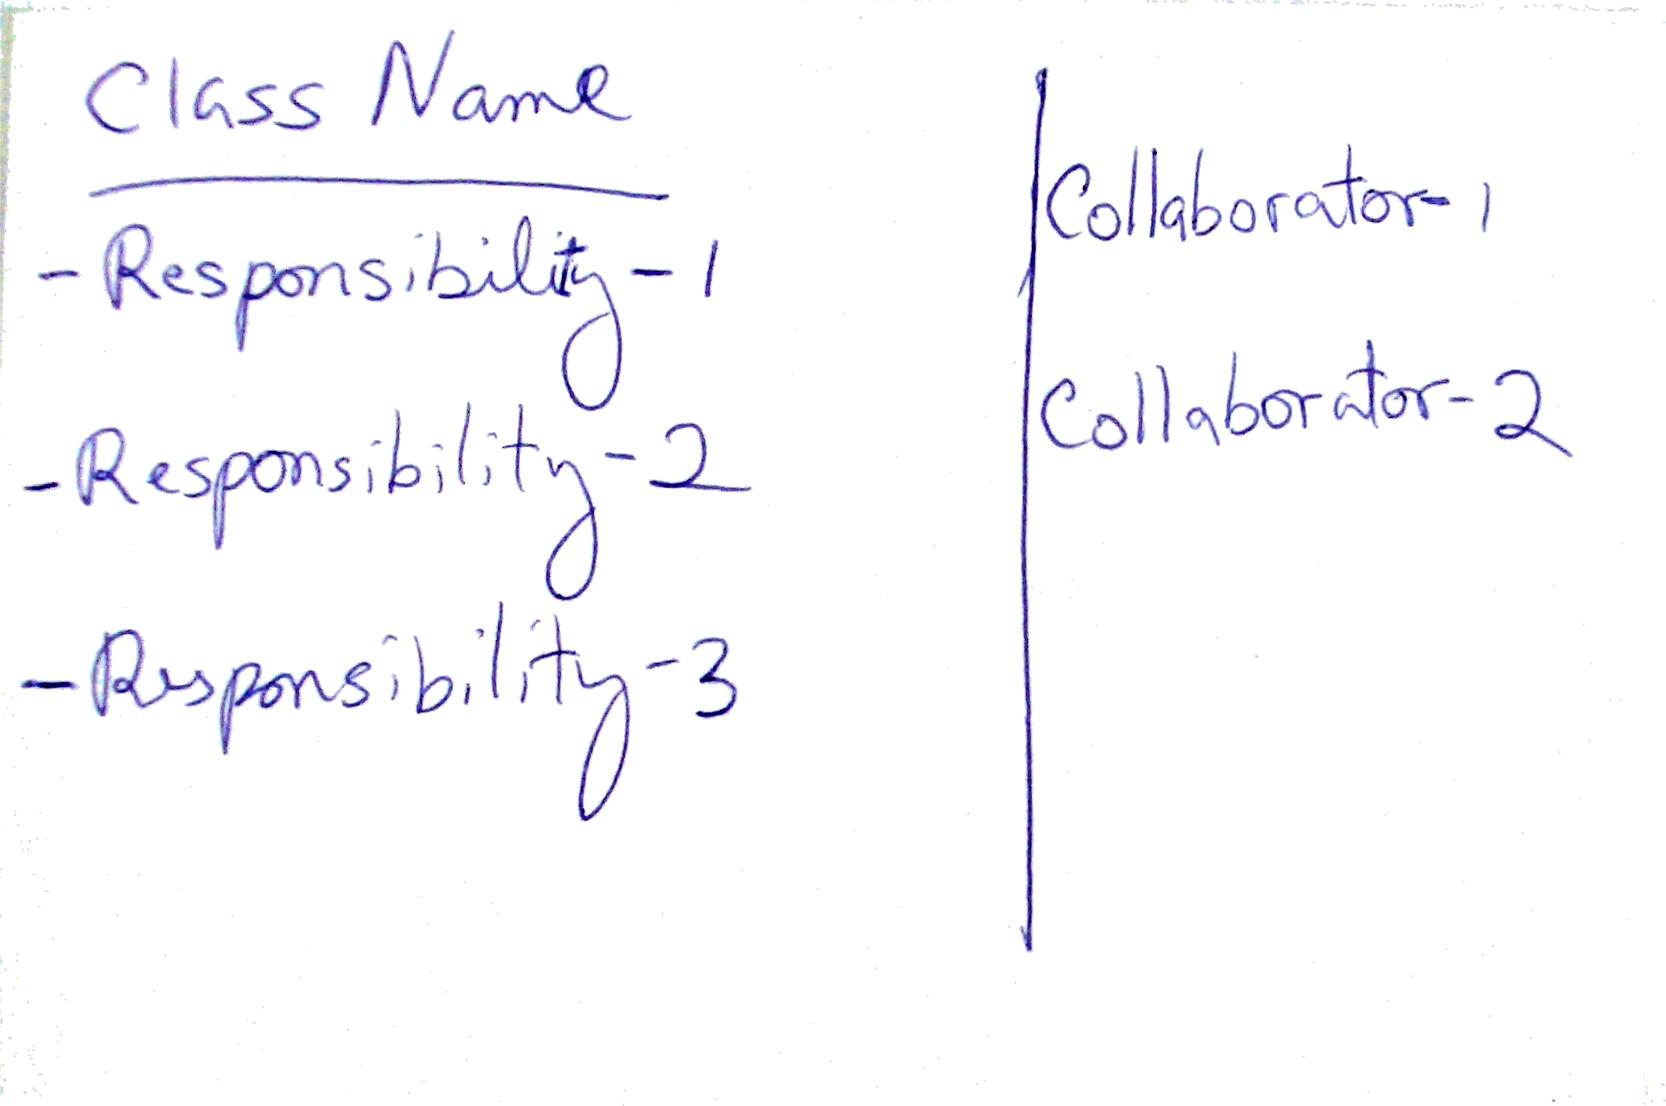 Class Name
- Responsibility - 1
- Responsibility - 2
- Responsibility - 3
Collaborator - 1
Collaborator - 2